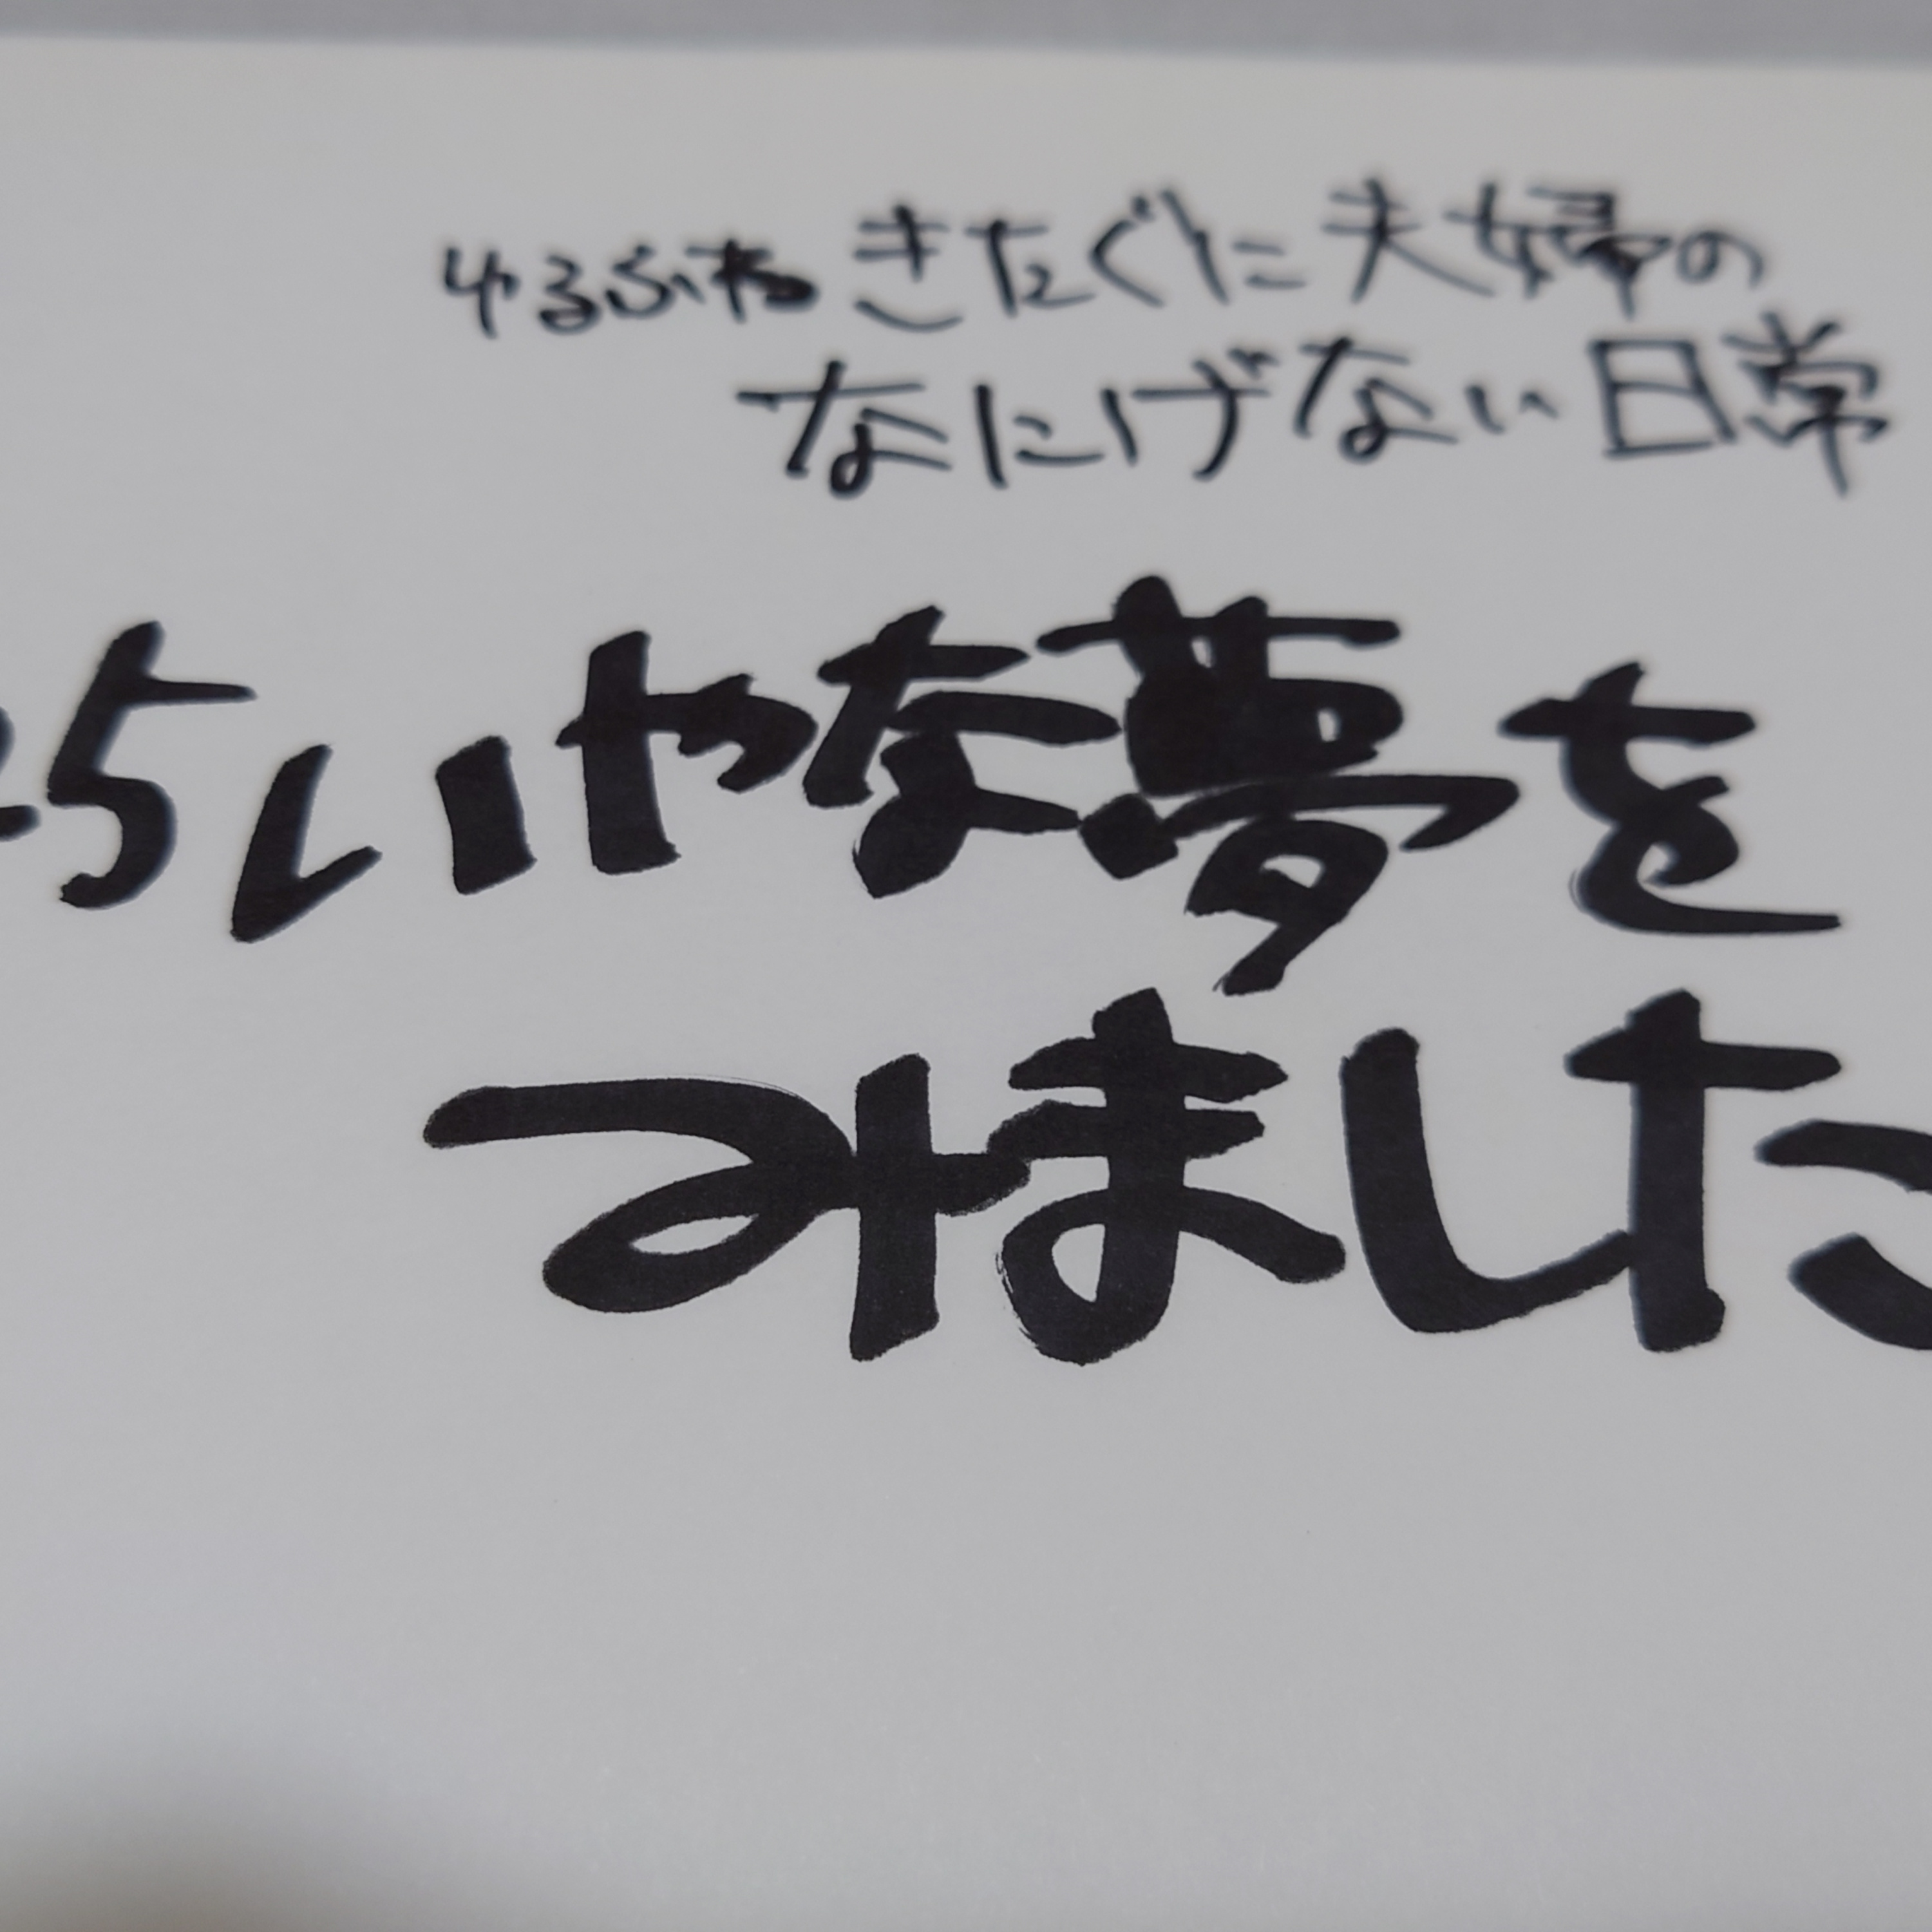 ゆるふわ きたぐに夫婦の
なにげない日常
らいやな夢を
みました